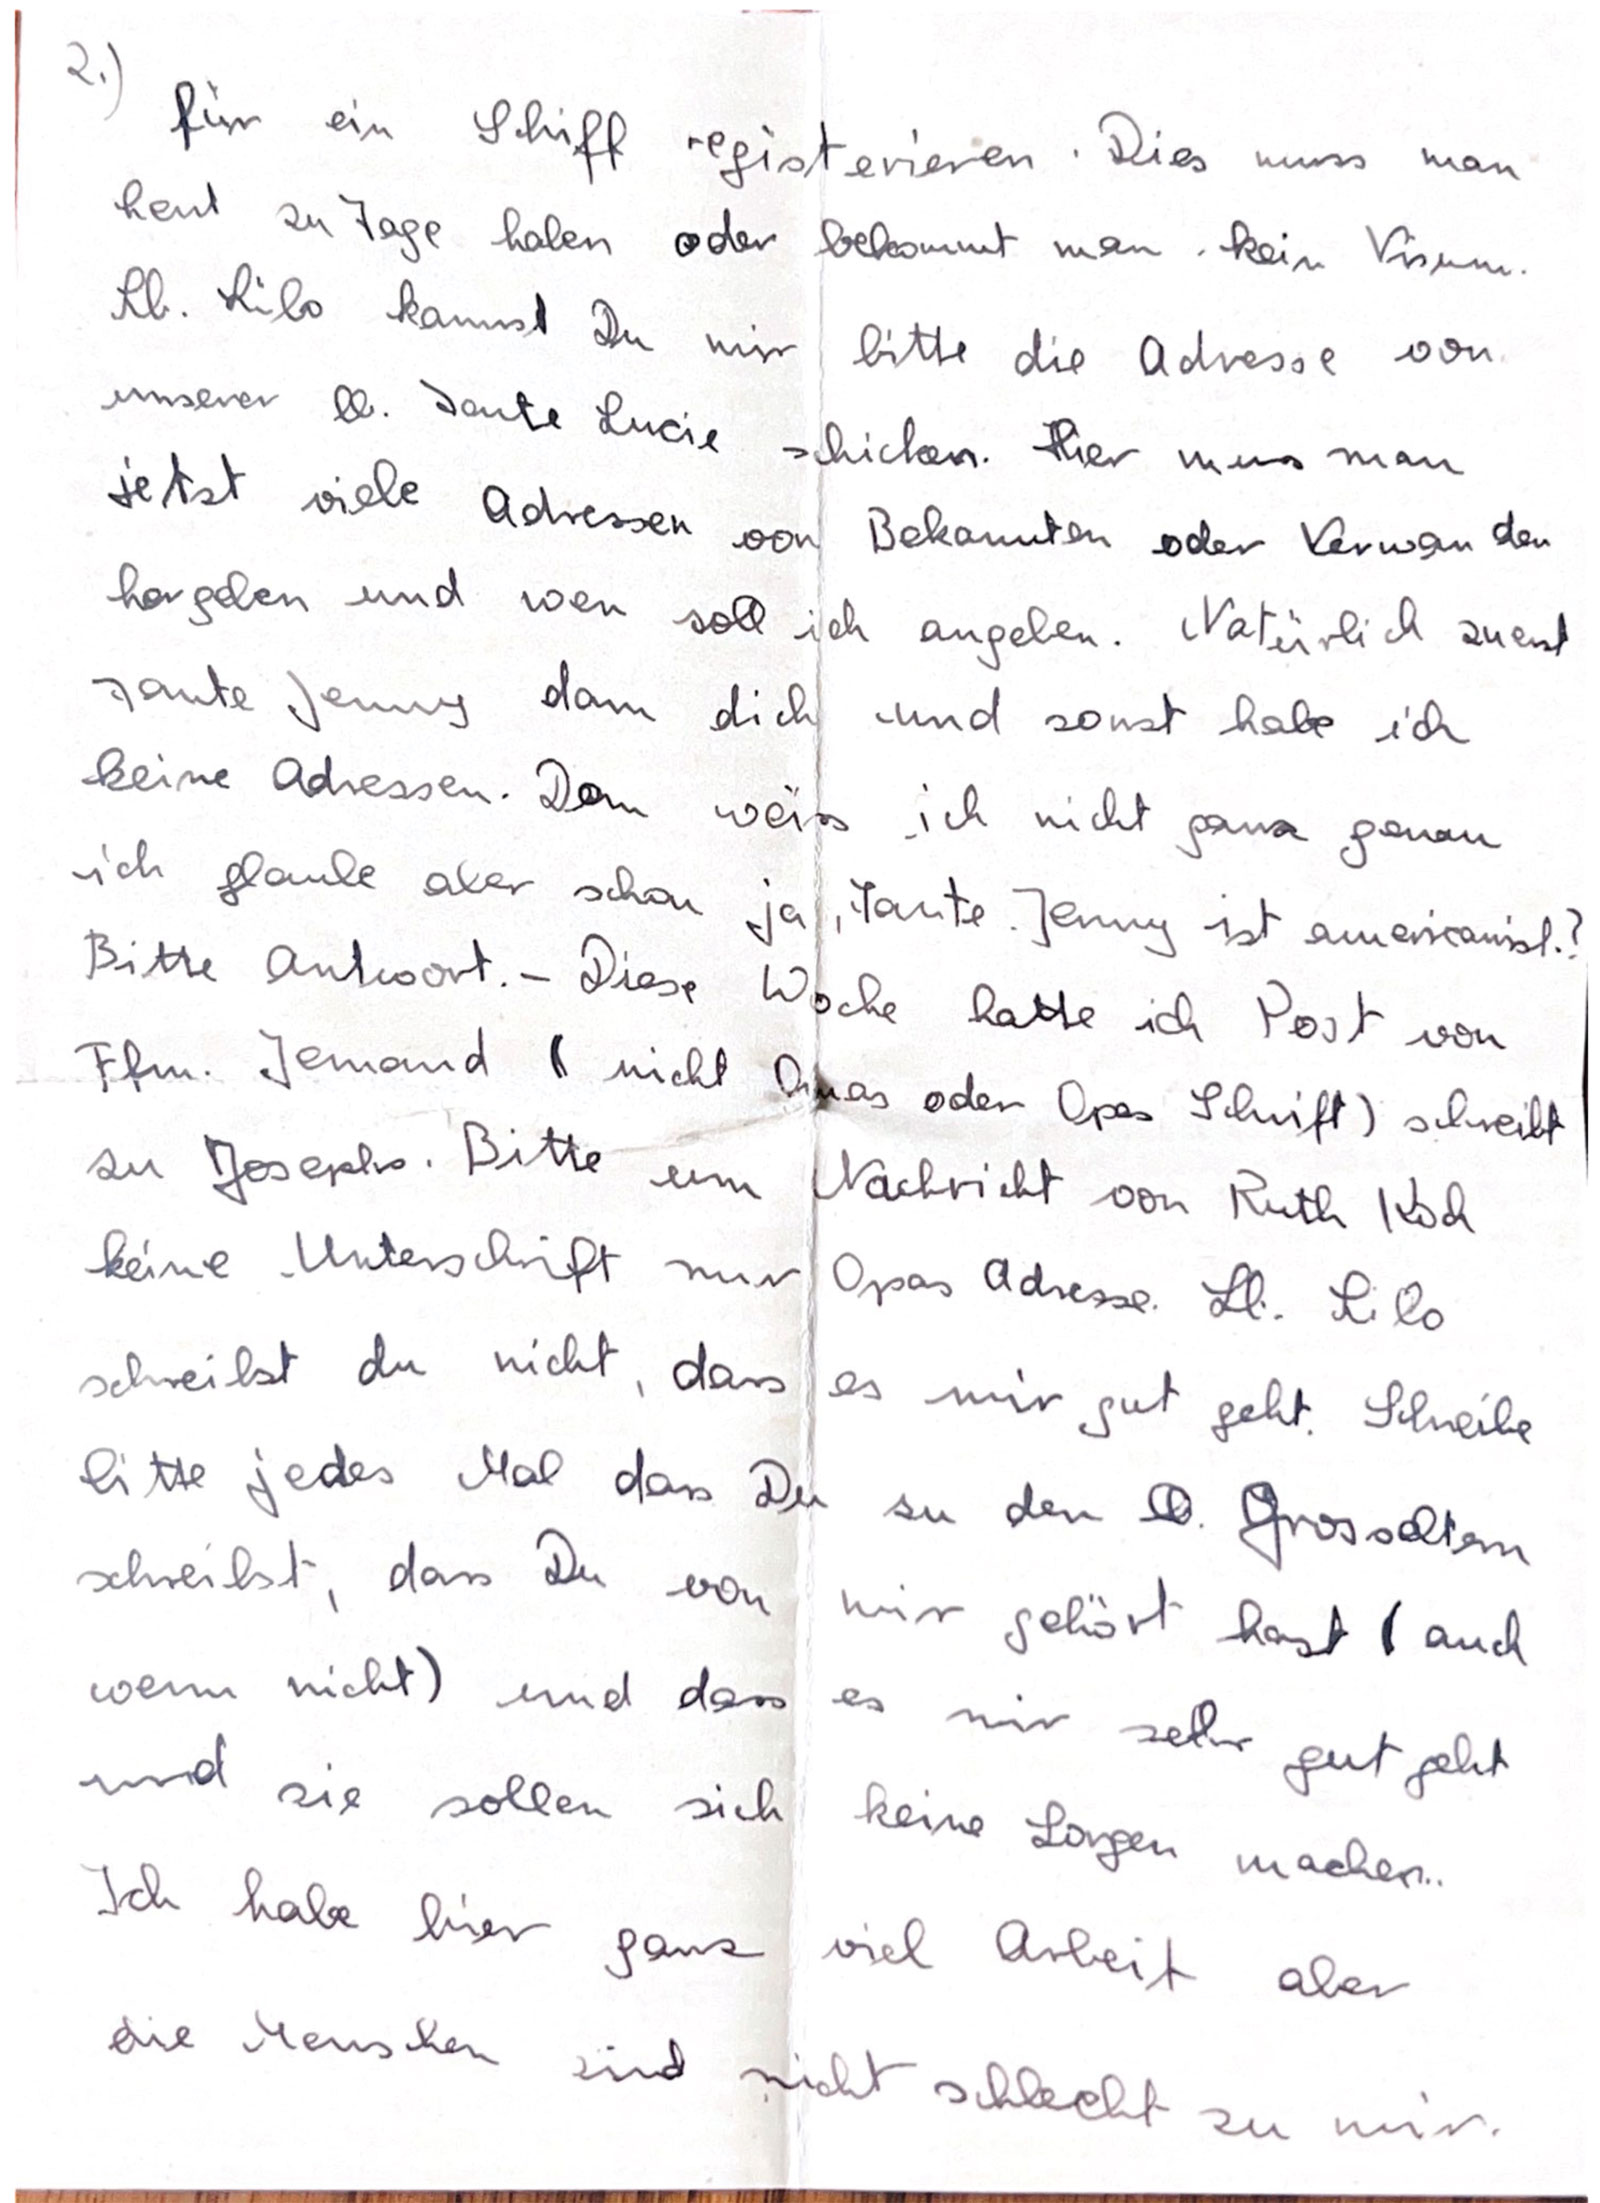 2.)
für ein Schiff registerieren. Dies muss man
heut zu Tage haben oder bekommt man kein Visum.
Lb. Lilo kannst Du mir bitte die Adresse von
unserer lb. Tante Lucie schicken. Hier muss man
jetzt viele Adressen von Bekannten oder Verwanden
hergeben und wen soll ich angeben. Natürlich zuerst
Tante Jenny dann dich und sonst habe ich
keine Adressen. Dann weiss ich nicht ganz genau
ich glaube aber schon ja, Tante Jenny ist amerikanisch.?
Bitte Antwort. – Diese Woche hatte ich Post von
Ffm. Jemand (nicht Omas oder Opas Schrift) schreibt
zu Josephs. Bitte um Nachricht von Ruth Koch
keine Unterschrift nur Opas Adresse. Lb. Lilo
schreibst du nicht, dass es mir gut geht. Schreibe
bitte jedes Mal dass Du zu den lb. Grosseltern
schreibst, dass Du von mir gehört hast (auch
wenn nicht) und dass es mir sehr gut geht
und sie sollen sich keine Sorgen machen..
Ich habe hier ganz viel Arbeit aber
die Menschen sind nicht schlecht zu mir.